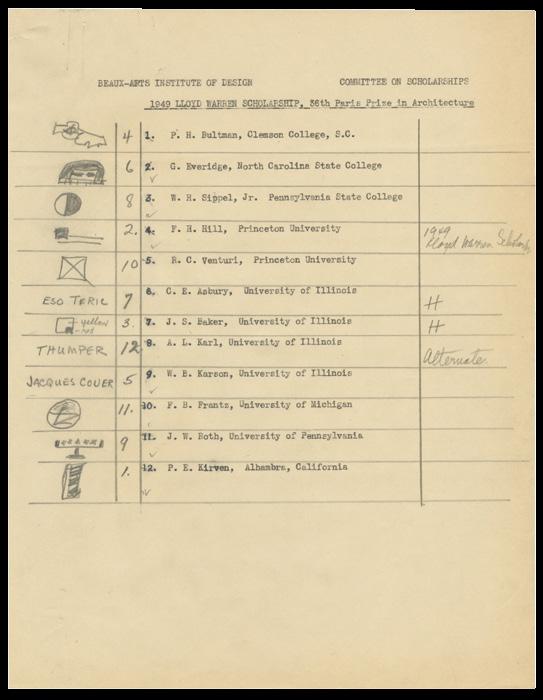 BEAUX-ARTS INSTITUTE OF DESIGN COMMITTEE ON SCHOLARSHIPS
1949 LLOYD WARREN SCHOLARSHIP, 36th Paris Prize in Architecture
4 1. P. H. Bultman, Clemson College, S.C.
6 2. G. Everidge, North Carolina State College
8 3. W. H. Sippel, Jr. Pennsylvania State College
2. 4. F. H. Hill, Princeton University 1949
Lloyd Warren Scholarship
10 5. R. C. Venturi, Princeton University
ESO TERIC 7 6. C. E. Asbury, University of Illinois H
yellow
red
3. 7. J. S. Baker, University of Illinois H
THUMPER 12 8. A. L. Karl, University of Illinois Alternate.
JACQUES COUER 5 9. W. B. Karson, University of Illinois
11. 10. F. B. Frantz, University of Michigan
9 11. J. W. Roth, University of Pennsylvania
1. 12. P. E. Kirven, Alhambra, California